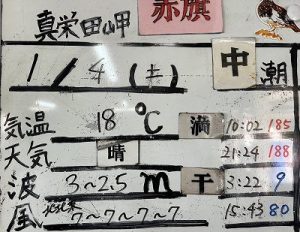 真栄田岬 赤旗
1/4(土) 中潮
気温 18℃ 満 10:02 185
天気 晴 21:24 188
波 3~2.5m 干 3:22 9
風 北北東 7~7~7~7 15:43 80